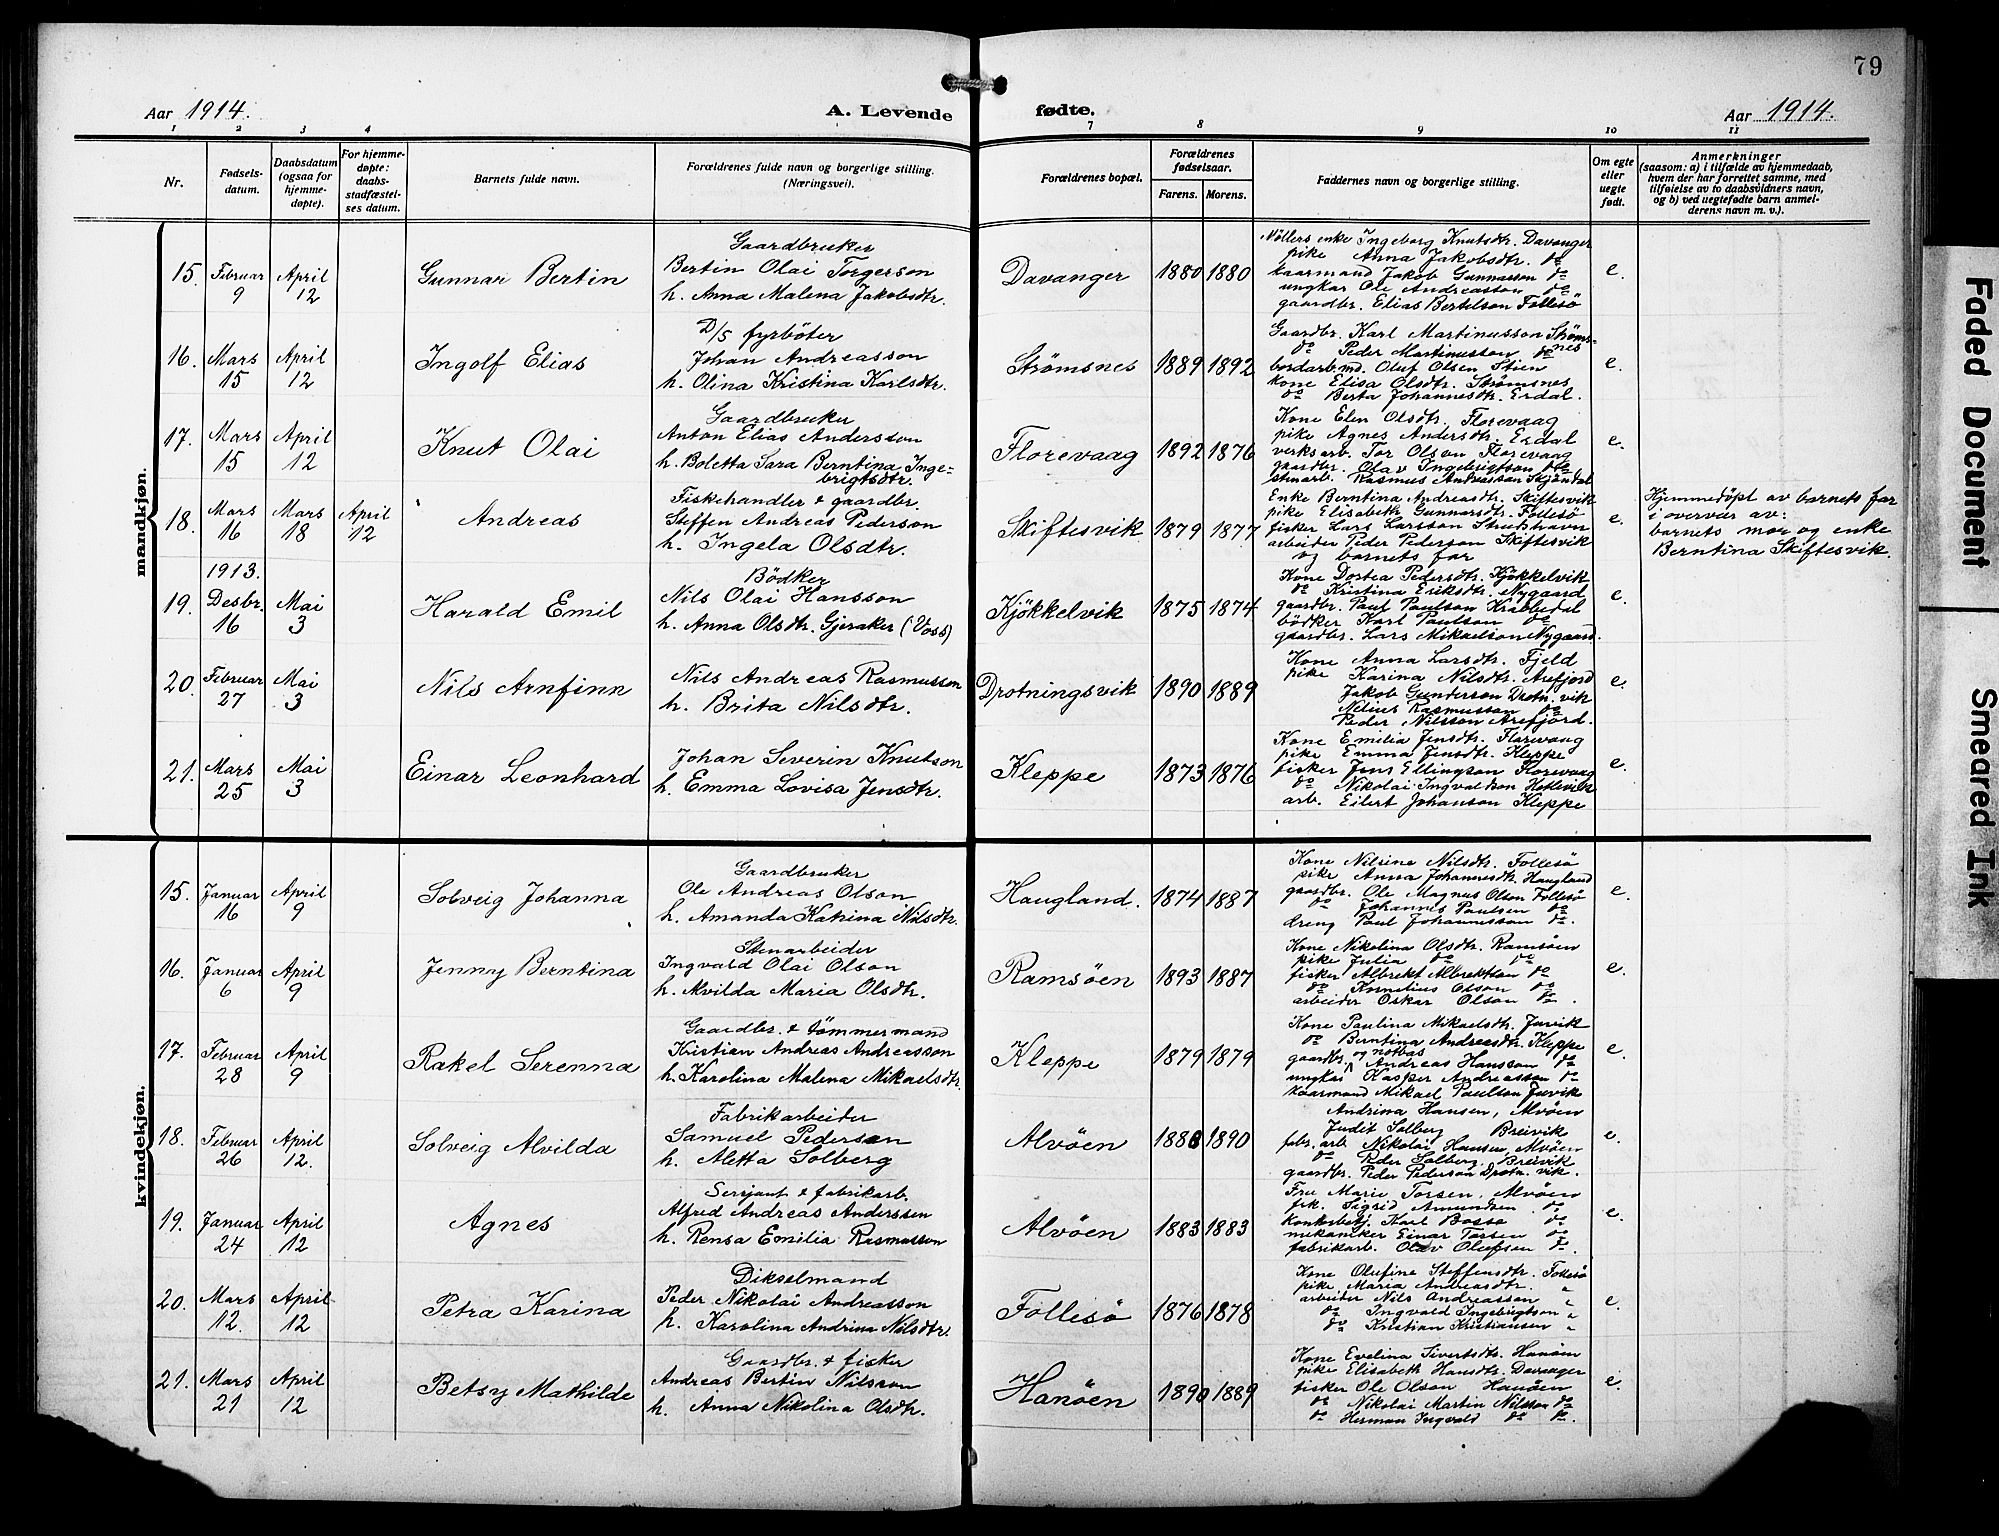 79
Aar 1914. A. Levende fødte. Aar 1914.
1 2 3 4 7 8 9 10 11
Nr.
Fødsels-
datum.
Daabsdatum
(ogsaa for
hjemme-
døpte).
For hjemme-
døpte:
daabs-
stadfæstel-
ses datum.
Barnets fulde navn.
Forældrenes fulde navn og borgerlige stilling.
(Næringsvei).
Forældrenes bopæl.
Forældrenes
fødselsaar.
Farens. Morens.
Faddernes navn og borgerlige stilling.
Om egte
eller
uegte
født.
Anmerkninger
(saasom: a) i tilfælde av hjemmedaab,
hvem der har forrettet samme, med
tilføielse av to daabsvidners navn,
og b) ved uegtefødte barn anmel-
derens navn m. v.).
mandkjøn.
15. Februar 9 April 12 Gunnar Bertin
Gaardbruker
Bertin Olai Torgerson
h. Anna Malena Jakobsdtr.
Davanger 1880 1880
Nöllers enke Ingeborg Knutsdtr. Davanger
pike Anna Jakobsdtr. do
kaarmand Jakob Gunnarson do
ungkar Ole Andreasson do
gaardbr. Elias Bertelson Follesö
e.
16. Mars 15 April 12 Ingolf Elias
D/S fyrböter
Johan Andreasson
h. Olina Kristina Karlsdtr.
Strømsnes 1889 1892
Gaardbr. Karl Martinusson Strøms-
nes
do Peder Martinusson do
bordarb.md. Oluf Olsen Stien
Kone Elisa Olsdtr. Strømsnes
do Berta Johannesdtr. Erdal.
e.
17. Mars 15 April 12 Knut Olai
Gaardbruker
Anton Elias Andersson
h. Boletta Sara Berntina Inge-
brigtsdtr.
Florevaag 1892 1876
Kone Elen Olsdtr. Florevaag
pike Agnes Andersdtr. Erdal
verksarb. Tor Olson Florevaag
gaardbr. Olav Ingebrigtson do
stenarb. Rasmus Andreasson
e.
18. Mars 16 Mars 18 April 12 Andreas
Fiskehandler & gaardbr.
Steffen Andreas Pederson
h. Ingela Olsdtr.
Skiftesvik 1879 1877
Enke Berntina Andreasdtr. Skiftesvik
pike Elisabeth Gunnarsdtr. Follesö
fisker Lars Larsson Strutshavn
arbeider Peder Pederson Skiftesvik
og barnets far
e.
Hjemmedöpt av barnets far
i overvær av:
barnets mor og enke
Berntina Skiftesvik.
19. 1913. Desbr. 16 Mai 3 Harald Emil
Bödker
Nils Olai Hansson
h. Anna Olsdtr. Gjeraker (Voss)
Kjøkkelvik 1875 1874
Kone Dortea Pedersdtr. Kjøkkelvik
do Kristina Eriksdtr. Nygaard
gaardbr. Paul Paulson Krabbedal
bödker Karl Paulson do
gaardbr. Lars Mikaelson Nygaard.
e.
20. Februar 27 Mai 3 Nils Arnfinn
Nils Andreas Rasmusson
h. Brita Nilsdtr.
Drotningsvik 1890 1889
Kone Anna Larsdtr. Fjeld
pike Karina Nilsdtr. Arefjord
Jakob Gunderson Drotn. vik
Nelius Rasmusson do
Peder Nilsson Arefjord.
e.
21. Mars 25 Mai 3 Einar Leonhard
Johan Severin Knutson
h. Emma Lovisa Jensdtr.
Kleppe 1873 1876
Kone Emilia Jensdtr. Florevaag
pike Emma Jensdtr. Kleppe
fisker Jens Ellingson Florevaag
do Nikolai Ingvaldson Hetlevik
arb. Eilert Johanson Kleppe
e.
kvindekjøn.
15. Januar 16 April 9 Solveig Johanna
Gaardbruker
Ole Andreas Olson
h. Amanda Katrina Nilsdtr.
Haugland. 1874 1887
Kone Nilsine Nilsdtr. Follesö
pike Anna Johannesdtr. Haugland
gaardbr. Ole Magnus Olson Follesö
do Johannes Paulsen do
dreng Paul Johannesson do
e.
16. Januar 6 April 9 Jenny Berntina
Stenarbeider
Ingvald Olai Olson
h. Alvilda Maria Olsdtr.
Ramsöen 1893 1887
Kone Nikolina Olsdtr. Ramsöen
pike Julia do do
fisker Albrekt Albrektson do
do Kornelius Olson do
arbeider Oskar Olson do.
e.
17. Februar 28 April 9 Rakel Serenna
Gaardbr. & tömmermand
Kristian Andreas Andreasson
h. Karolina Malena Mikaelsdtr.
Kleppe 1879 1879
Kone Paulina Mikaelsdtr. Juvik
do Berntina Andreasdtr. Kleppe
gaardbr. og notbas Andreas Hansson do
ungkar Kasper Andreasson do
kaarmand Mikael Paulson Juvik
e.
18. Februar 26 April 12. Solveig Alvilda
Fabrikarbeider
Samuel Pedersen
h. Aletta Solberg
Alvöen 1888 1890
Andrina Hansen, Alvöen
Judit Solberg Breivik
fabr. arb. Nikolai Hansen, Alvöen
do Peder Solberg, Breivik
gaardbr. Peder Pederson Drotn. vik.
e.
19. Januar 24 April 12 Agnes
Sersjant & fabrikarb.
Alfred Andreas Anderssen
h. Rensa Emilia Rasmusson
Alvöen 1883 1883
Fru Marie Torsen, Alvöen
frk. Sigrid Amundsen do
kontorbetj. Karl Basso do
mekaniker Einar Torsen do
fabrikarb. Olav Olufsen do.
e.
20. Mars 12. April 12 Petra Karina
Dikselmand
Peder Nikolai Andreasson
h. Karolina Andrina Nilsdtr.
Follesö 1876 1878
Kone Olufine Steffensdtr. Follesö
pike Maria Andreasdtr. "
arbeider Nils Andreasson "
do Ingvald Ingebrigtson "
do Kristian Kristiansen "
e.
21. Mars 21 April 12 Betsy Mathilde
Gaardbr. & fisker
Andreas Bertin Nilsson
h. Anna Nikolina Olsdtr.
Hanöen 1890 1889
Kone Evelina Sivertsdtr. Hanöen
pike Elisabeth Hansdtr. Davanger
fisker Ole Olson Hanöen
do Nikolai Martin Nilsson do
do Herman Ingvald do do.
e.
Faded Document
Smeared Ink